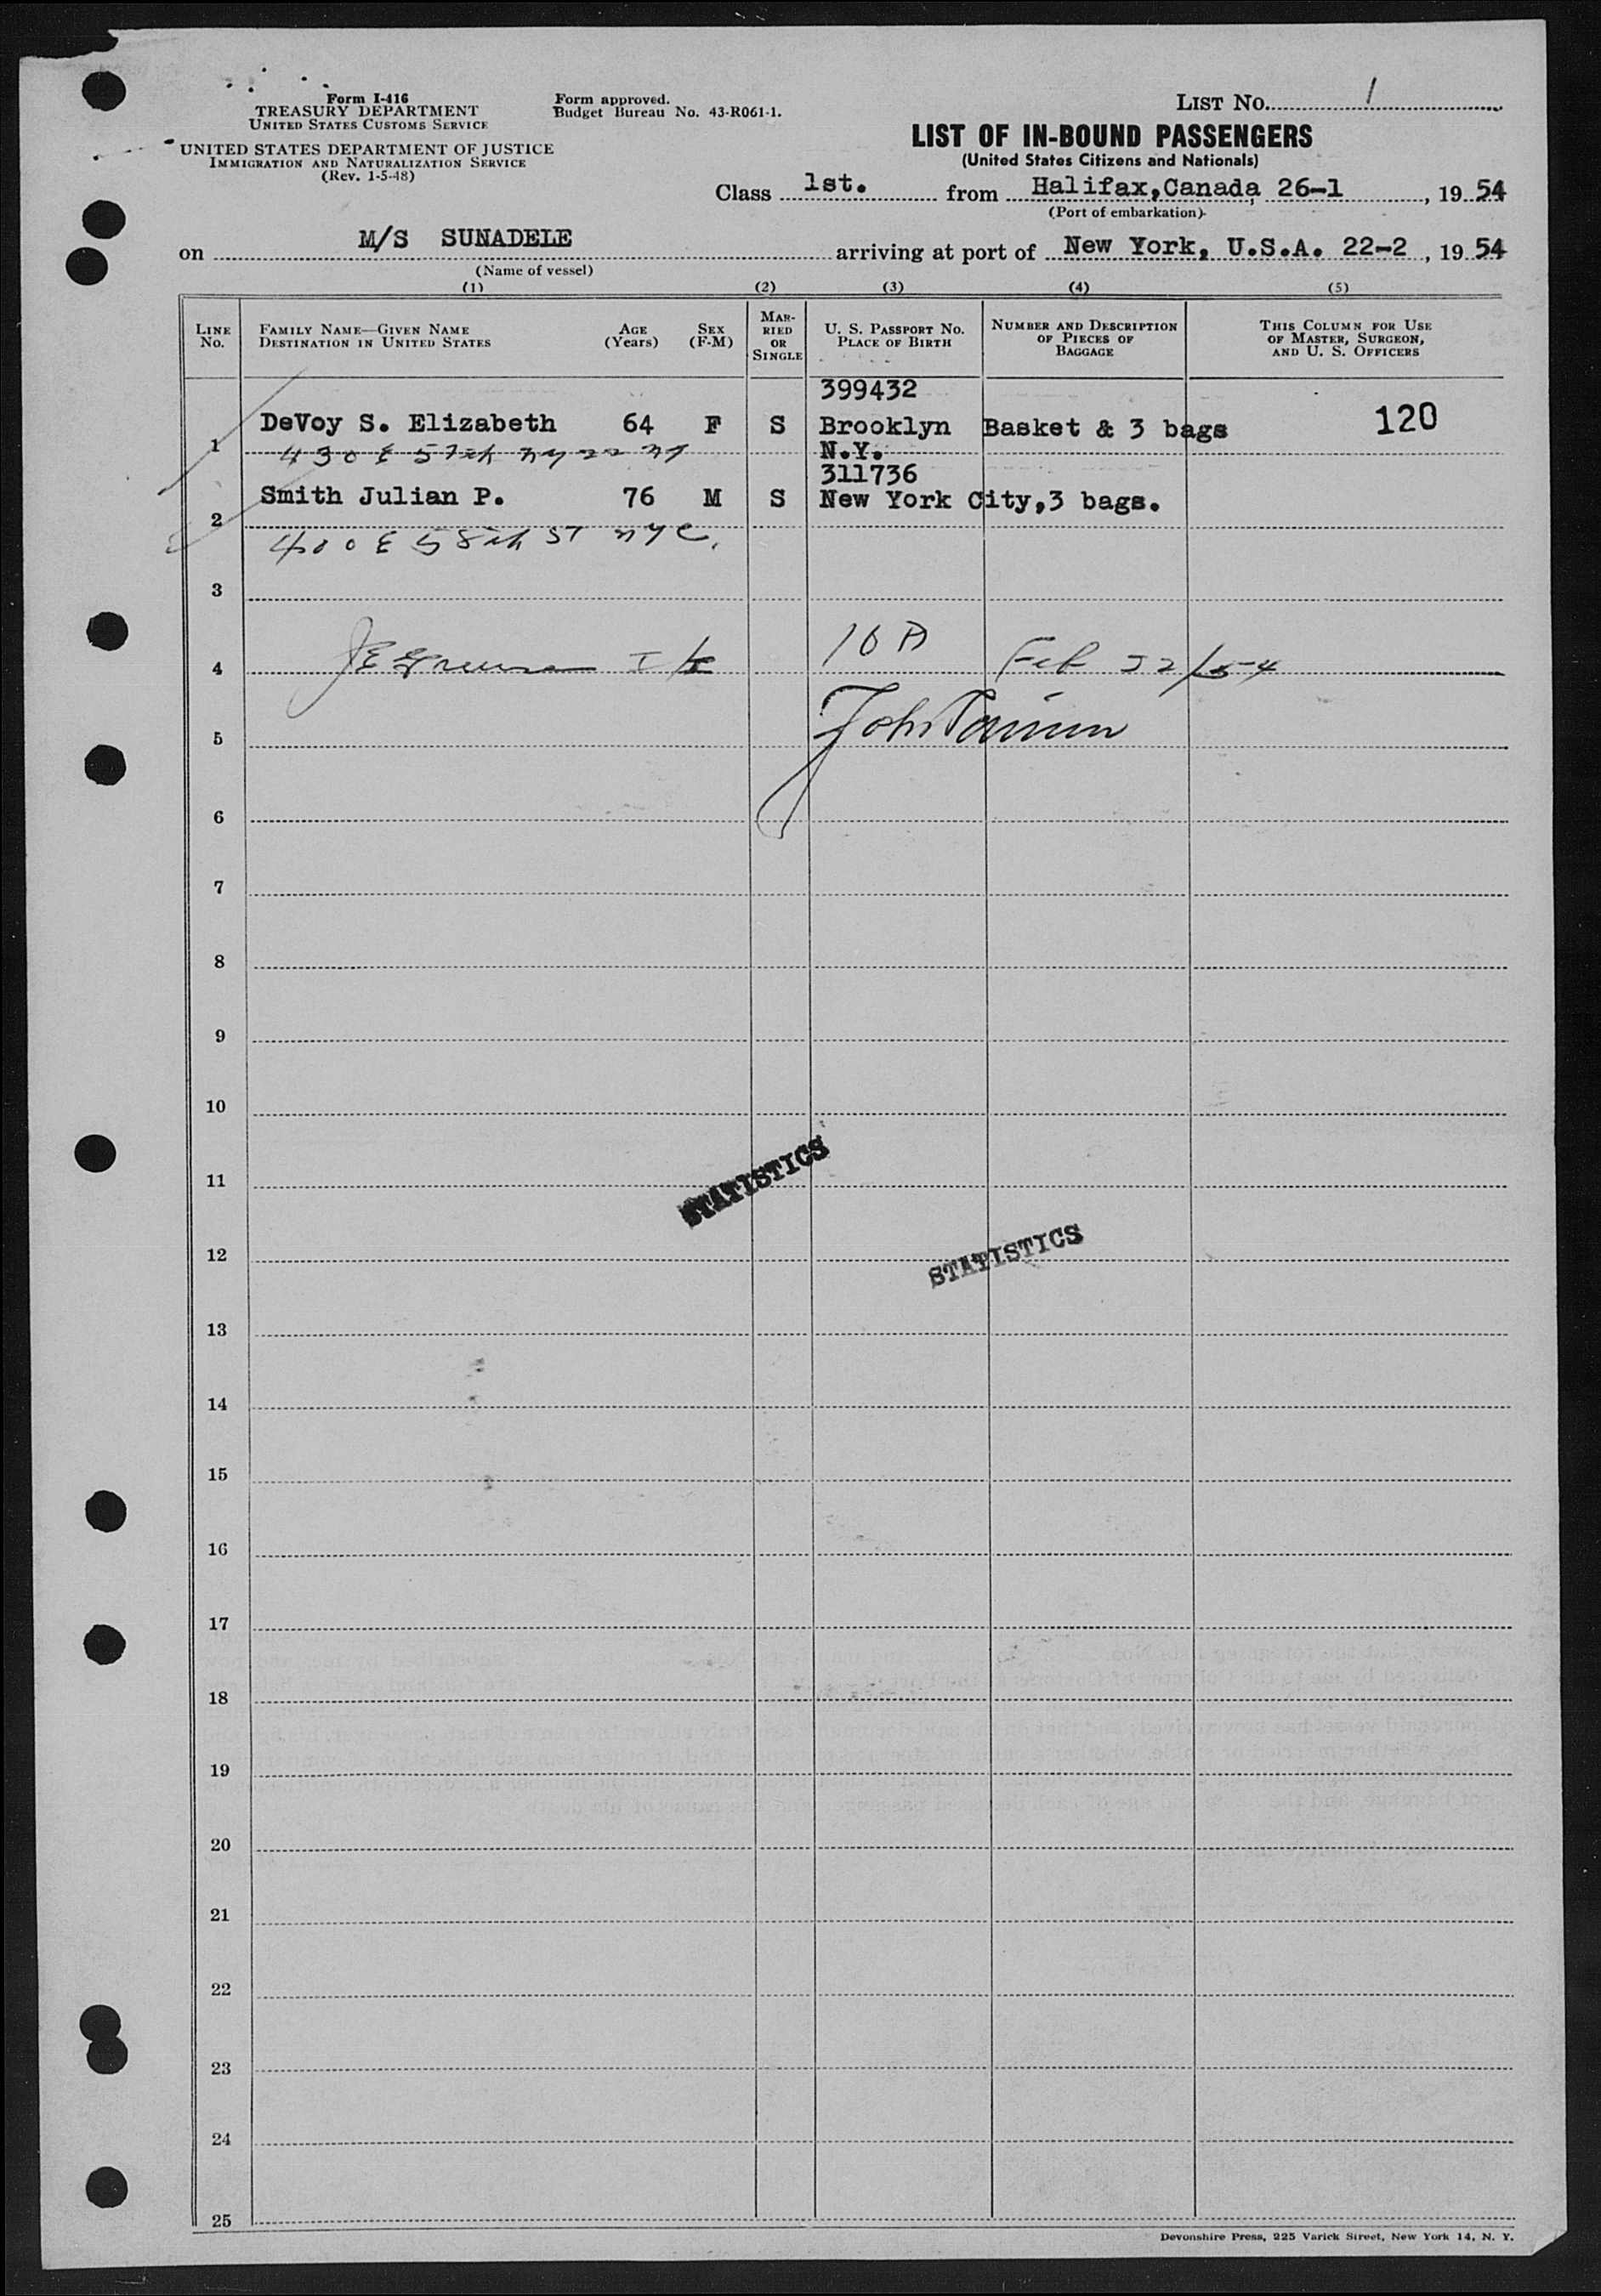 Form I-416
TREASURY DEPARTMENT
UNITED STATES CUSTOMS SERVICE
UNITED STATES DEPARTMENT OF JUSTICE
IMMIGRATION AND NATURALIZATION SERVICE
(Rev. 1-5-48)
Form approved.
Budget Bureau No. 43-R061-1.
LIST No. 1
LIST OF IN-BOUND PASSENGERS
(United States Citizens and Nationals)
Class 1st. from Halifax,Canada, 26-1, 1954
(Port of embarkation)
on M/S SUNADELE arriving at port of New York, U.S.A. 22-2, 1954
(Name of vessel)
(1) (2) (3) (4) (5)
LINE No.
FAMILY NAME—GIVEN NAME DESTINATION IN UNITED STATES
AGE (Years)
SEX (F-M)
MARRIED OR SINGLE
U. S. PASSPORT NO. PLACE OF BIRTH
NUMBER AND DESCRIPTION OF PIECES OF BAGGAGE
THIS COLUMN FOR USE OF MASTER, SURGEON, AND U. S. OFFICERS
399432
1 DeVoy S. Elizabeth 64 F S Brooklyn Basket & 3 bags 120
430 E 57th ny 22 ny N.Y.
311736
2 Smith Julian P. 76 M S New York City,3 bags.
400 E 58th ST nyc.
3
4 Feb 22/54
5 John
6
7
8
9
10
11
STATISTICS
12
STATISTICS
13
14
15
16
17
18
19
20
21
22
23
24
25
Devonshire Press, 225 Varick Street, New York 14, N. Y.